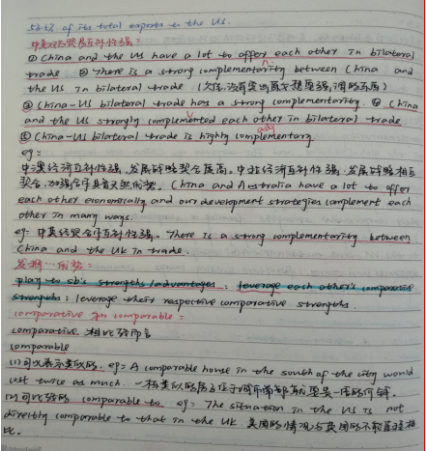 52.1% of its total exports to the US.
中美经贸互补性强:
① China and the US have a lot to offer each other in bilateral
trade. ② There is a strong complementarity between China and
the US in bilateral trade
③ China-US bilateral trade has a strong complementarity. ④ China
and the US strongly complemented each other in bilateral trade
⑤ China-US bilateral trade is highly complementary
eg:
中澳经济互补性强,发展战略契合度高。中北经济互补性强,发展战略相互
契合,加强合作具有天然优势。China and Australia have a lot to offer
each other economically and our development strategies complement each
other in many ways.
eg: 中英经贸合作互补性强。There is a strong complementarity between
China and the UK in trade.
发挥…优势:
play to sb's strengths/advantages; leverage each other's comparative
strengths; leverage their respective comparative strengths.
comparative comparable:
comparative 相比较而言
comparable
(1) 可以表示类似的. eg: A comparable house in the south of the city would
cost twice as much. 一栋类似的房子位于城市南部就要
(2) 可比较的 comparable to eg: The situation in the US is not
directly comparable to that in the UK. 美国的情况与英国的不能直接相
比.